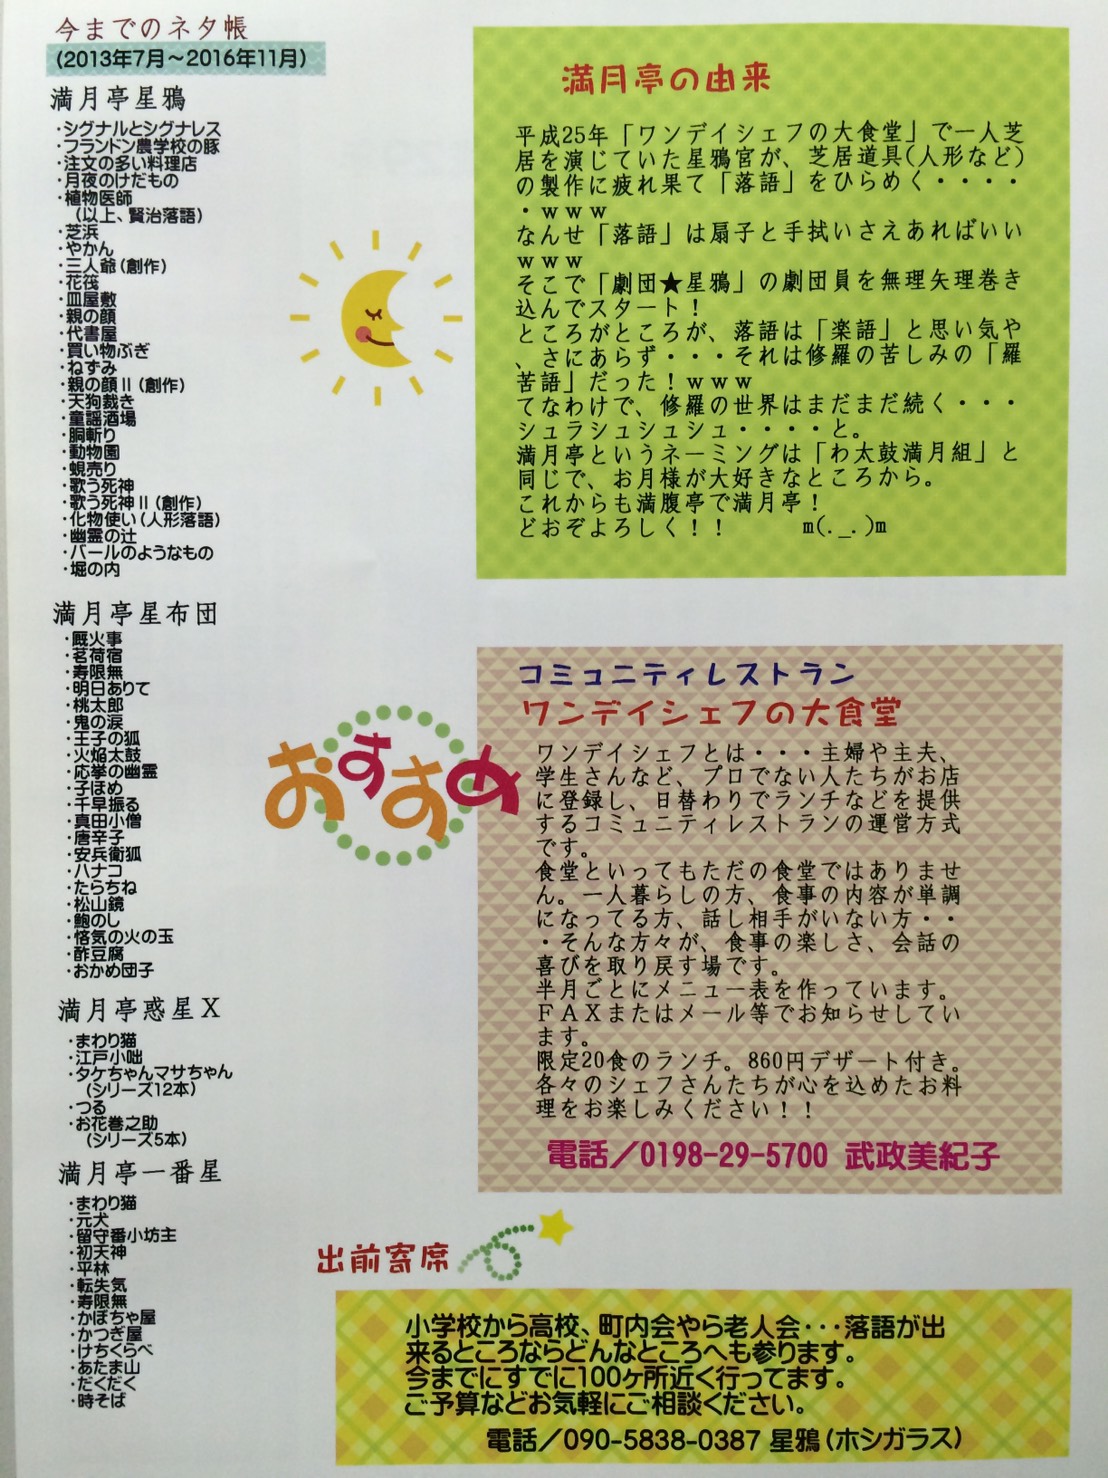 今までのネタ帳
(2013年7月～2016年11月)
満月亭星鴉
・シグナルとシグナレス
・フランドン農学校の豚
・注文の多い料理店
・月夜のけだもの
・植物医師
(以上、賢治落語)
・芝浜
・やかん
・三人爺(創作)
・花筏
・皿屋敷
・親の顔
・代書屋
・買い物ぶぎ
・ねずみ
・親の顔Ⅱ(創作)
・天狗裁き
・童謡酒場
・胴斬り
・動物園
・蜆売り
・歌う死神
・歌う死神Ⅱ(創作)
・化物使い(人形落語)
・幽霊の辻
・バールのようなもの
・堀の内
満月亭星布団
・厩火事
・茗荷宿
・寿限無
・明日ありて
・桃太郎
・鬼の涙
・王子の狐
・火焔太鼓
・応挙の幽霊
・子ほめ
・千早振る
・真田小僧
・唐辛子
・安兵衛狐
・ハナコ
・たらちね
・松山鏡
・鮑のし
・悋気の火の玉
・酢豆腐
・おかめ団子
満月亭惑星Ｘ
・まわり猫
・江戸小咄
・タケちゃんマサちゃん
(シリーズ12本)
・つる
・お花巻之助
(シリーズ5本)
満月亭一番星
・まわり猫
・元犬
・留守番小坊主
・初天神
・平林
・転失気
・寿限無
・かぼちゃ屋
・かつぎ屋
・けちくらべ
・あたま山
・だくだく
・時そば
満月亭の由来
平成25年「ワンデイシェフの大食堂」で一人芝
居を演じていた星鴉宮が、芝居道具(人形など)
の製作に疲れ果て「落語」をひらめく・・・・
・ｗｗｗ
なんせ「落語」は扇子と手拭いさえあればいい
ｗｗｗ
そこで「劇団★星鴉」の劇団員を無理矢理巻き
込んでスタート！
ところがところが、落語は「楽語」と思い気や
、さにあらず・・・それは修羅の苦しみの「羅
苦語」だった！ｗｗｗ
てなわけで、修羅の世界はまだまだ続く・・・
シュラシュシュシュ・・・・と。
満月亭というネーミングは「わ太鼓満月組」と
同じで、お月様が大好きなところから。
これからも満腹亭で満月亭！
どおぞよろしく！！ m(._.)m
おすすめ
コミュニティレストラン
ワンデイシェフの大食堂
ワンデイシェフとは・・・主婦や主夫、
学生さんなど、プロでない人たちがお店
に登録し、日替わりでランチなどを提供
するコミュニティレストランの運営方式
です。
食堂といってもただの食堂ではありませ
ん。一人暮らしの方、食事の内容が単調
になってる方、話し相手がいない方・・
・そんな方々が、食事の楽しさ、会話の
喜びを取り戻す場です。
半月ごとにメニュー表を作っています。
ＦＡＸまたはメール等でお知らせしてい
ます。
限定20食のランチ。860円デザート付き。
各々のシェフさんたちが心を込めたお料
理をお楽しみください！！
電話／0198-29-5700 武政美紀子
出前寄席
小学校から高校、町内会やら老人会・・・落語が出
来るところならどんなところへも参ります。
今までにすでに100ヶ所近く行ってます。
ご予算などお気軽にご相談ください。
電話／090-5838-0387 星鴉(ホシガラス)